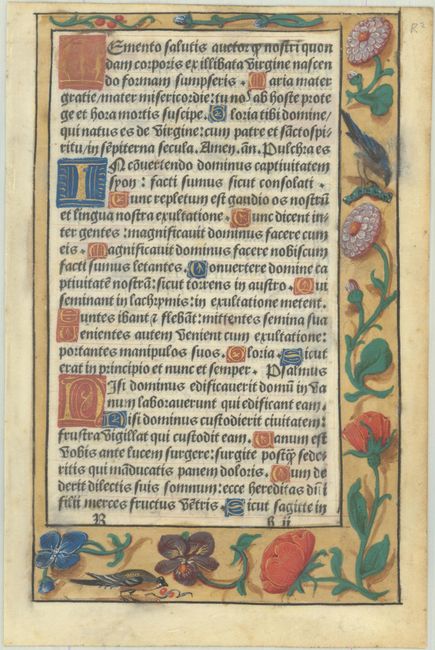 R 2
MEmento salutis auctor qp nostri quon
dam corporis ex illibata virgine nascen
do formam sumpseris. Maria mater
gratie/mater misericordie: tu nos ab hoste prote
ge et hora mortis suscipe. Gloria tibi domine/
qui natus es de virgine: cum patre et sācto spi-
ritu/in sēpiterna secula. Amen. añ. Pulchra es
IN cōvertendo dominus captiuitatem
syon: facti sumus sicut consolati.
Tunc repletum est gaudio os nostrū
et lingua nostra exultatione. Tunc dicent in-
ter gentes: magnificauit dominus facere cum
eis. Magnificauit dominus facere nobiscum
facti sumus letantes. Conuertere domine ca
ptiuitatē nostrā: sicut torrens in austro. Qui
seminant in lachrymis: in exultatione metent.
Euntes ibant & flebāt: mittentes semina sua
Uenientes autem venient cum exultatione:
portantes manipulos suos. Gloria. Sicut
erat in principio et nunc et semper. Psalmus
NIsi dominus edificauerit domū in va
num laborauerunt qui edificant eam.
Nisi dominus custodierit ciuitatem:
frustra vigillat qui custodit eam. Uanum est
vobis ante lucem surgere: surgite postq̄ sede
ritis qui māducatis panem doloris. Cum de
derit dilectis suis somnum: ecce hereditas dn̄i
filii merces fructus vētris. Sicut sagitte in
R B ii